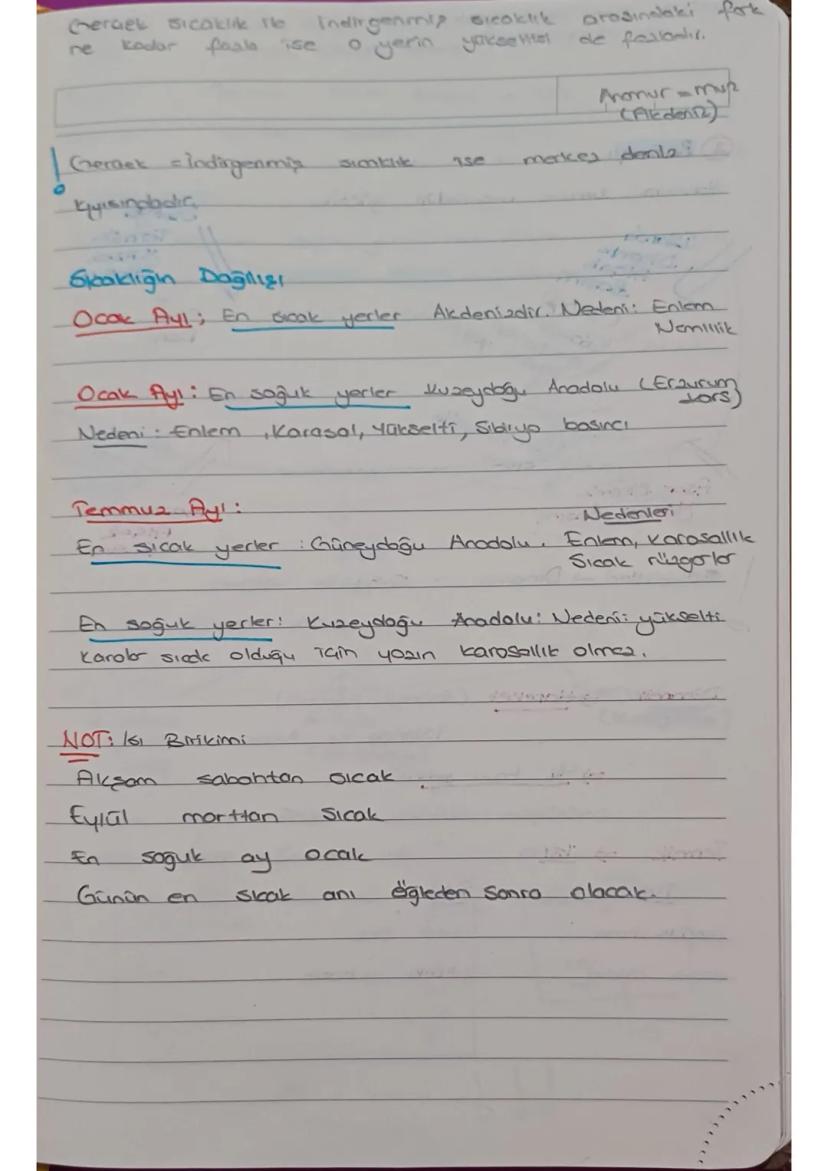 Gerçek sıcaklık ile indirgenmiş sıcaklık arasındaki fark
ne kadar fazla ise o yerin yükseltisi de fazladır.
Anamur = muz
(Akdeniz)
! Gerçek = İndirgenmiş sıcaklık ise merkez deniz
kıyısındadır.
Sıcaklığın Dağılışı
Ocak Ayı; En sıcak yerler Akdenizdir. Nedeni: Enlem
Nemlilik
Ocak Ayı: En soğuk yerler Kuzeydoğu Anadolu (Erzurum
Kars)
Nedeni: Enlem, Karasal, Yükselti, Sibirya basıncı
Temmuz Ayı:
Nedenleri
En sıcak yerler: Güneydoğu Anadolu. Enlem, Karasallık
Sıcak rüzgarlar
En soğuk yerler: Kuzeydoğu Anadolu: Nedeni: yükselti
Karalar sıcak olduğu için yazın karasallık olmaz.
NOT: Isı Birikimi
Akşam sabahtan sıcak
Eylül marttan sıcak
En soğuk ay ocak
Günün en sıcak anı öğleden sonra olacak.